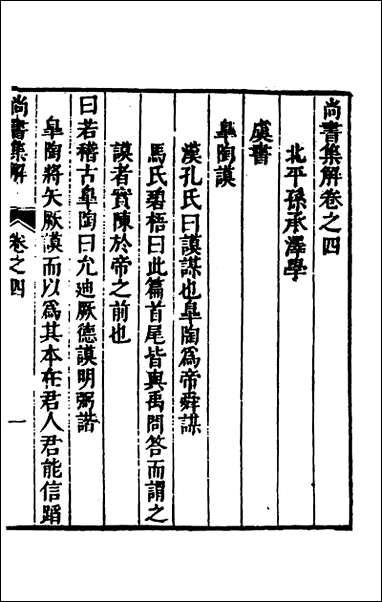 尚書集解卷之四
北平孫承澤學
虞書
皋陶謨
漢孔氏曰謨謀也皋陶爲帝舜謀
馬氏碧梧曰此篇首尾皆與禹問答而謂之
謨者實陳於帝之前也
曰若稽古皋陶曰允迪厥德謨明弼諧
皋陶將矢厥謨而以爲其本在君人君能信蹈
尚書集解 卷之四 一